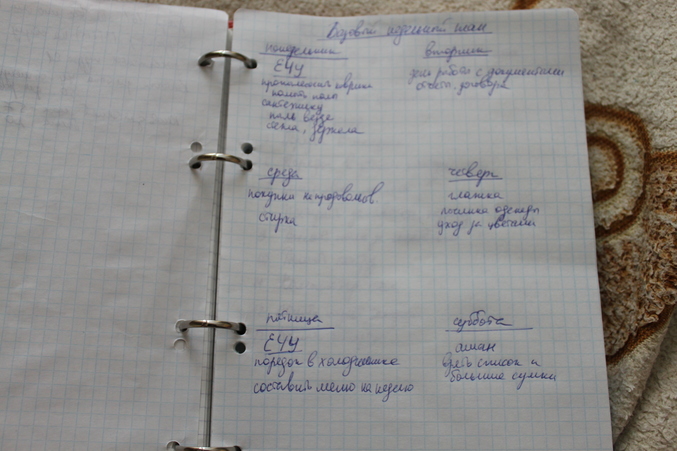 Базовый недельный план
понедельник
ЕЧУ
пропылесосить коврики
помыть полы
сантехнику
пыль везде
стёкла, зеркала
вторник
день работы с документами
счета, договора
среда
покупки непродовольств.
стирка
четверг
глажка
починка одежды
уход за цветами
пятница
ЕЧУ
порядок в холодильнике
составить меню на неделю
суббота
ашан
взять список и
большие сумки